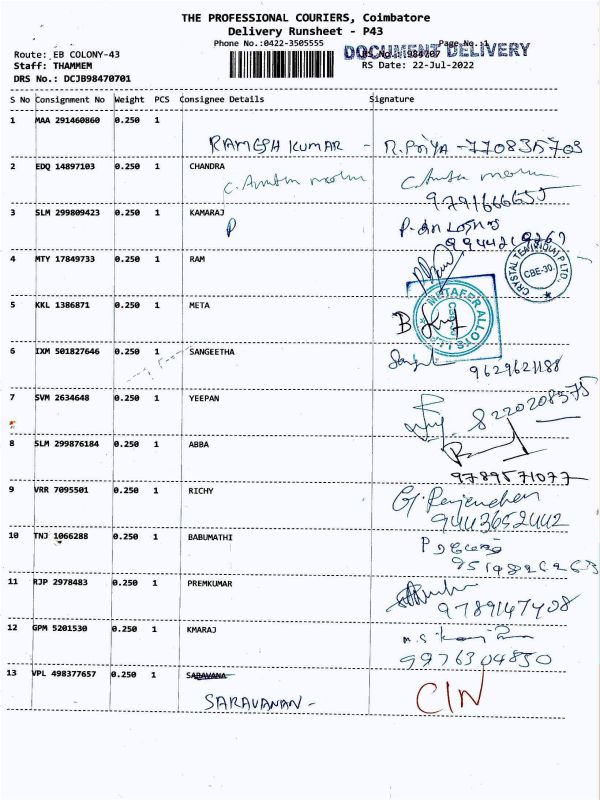 THE PROFESSIONAL COURIERS, Coimbatore
Delivery Runsheet - P43
Phone No.:0422-3505555
Page No.:1
DOCUMENT DELIVERY
Route: EB COLONY-43
Staff: THAMMEM
RS Date: 22-Jul-2022
DRS No.: DCJB98470701
S No Consignment No Weight PCS Consignee Details Signature
1 MAA 291460860 0.250 1
RAMESH KUMAR - R.PRIYA - 770835703
2 EDQ 14897103 0.250 1 CHANDRA
9791666655
3 SLM 299809423 0.250 1 KAMARAJ
P
4 MTY 17849733 0.250 1 RAM
CRYSTAL TEX (INDIA) P LTD.
CBE-30.
5 KKL 1386871 0.250 1 META
METAFER ALLOYS
6 IXM 501827646 0.250 1 SANGEETHA
9629621188
7 SVM 2634648 0.250 1 YEEPAN
8220208575
8 SLM 299876184 0.250 1 ABBA
9789571077
9 VRR 7095501 0.250 1 RICHY
9443652442
10 TNJ 1066288 0.250 1 BABUMATHI
11 RJP 2978483 0.250 1 PREMKUMAR
9789147408
12 GPM 5201530 0.250 1 KMARAJ
9976304850
13 VPL 498377657 0.250 1 SARAVANA
SARAVANAN - C/N